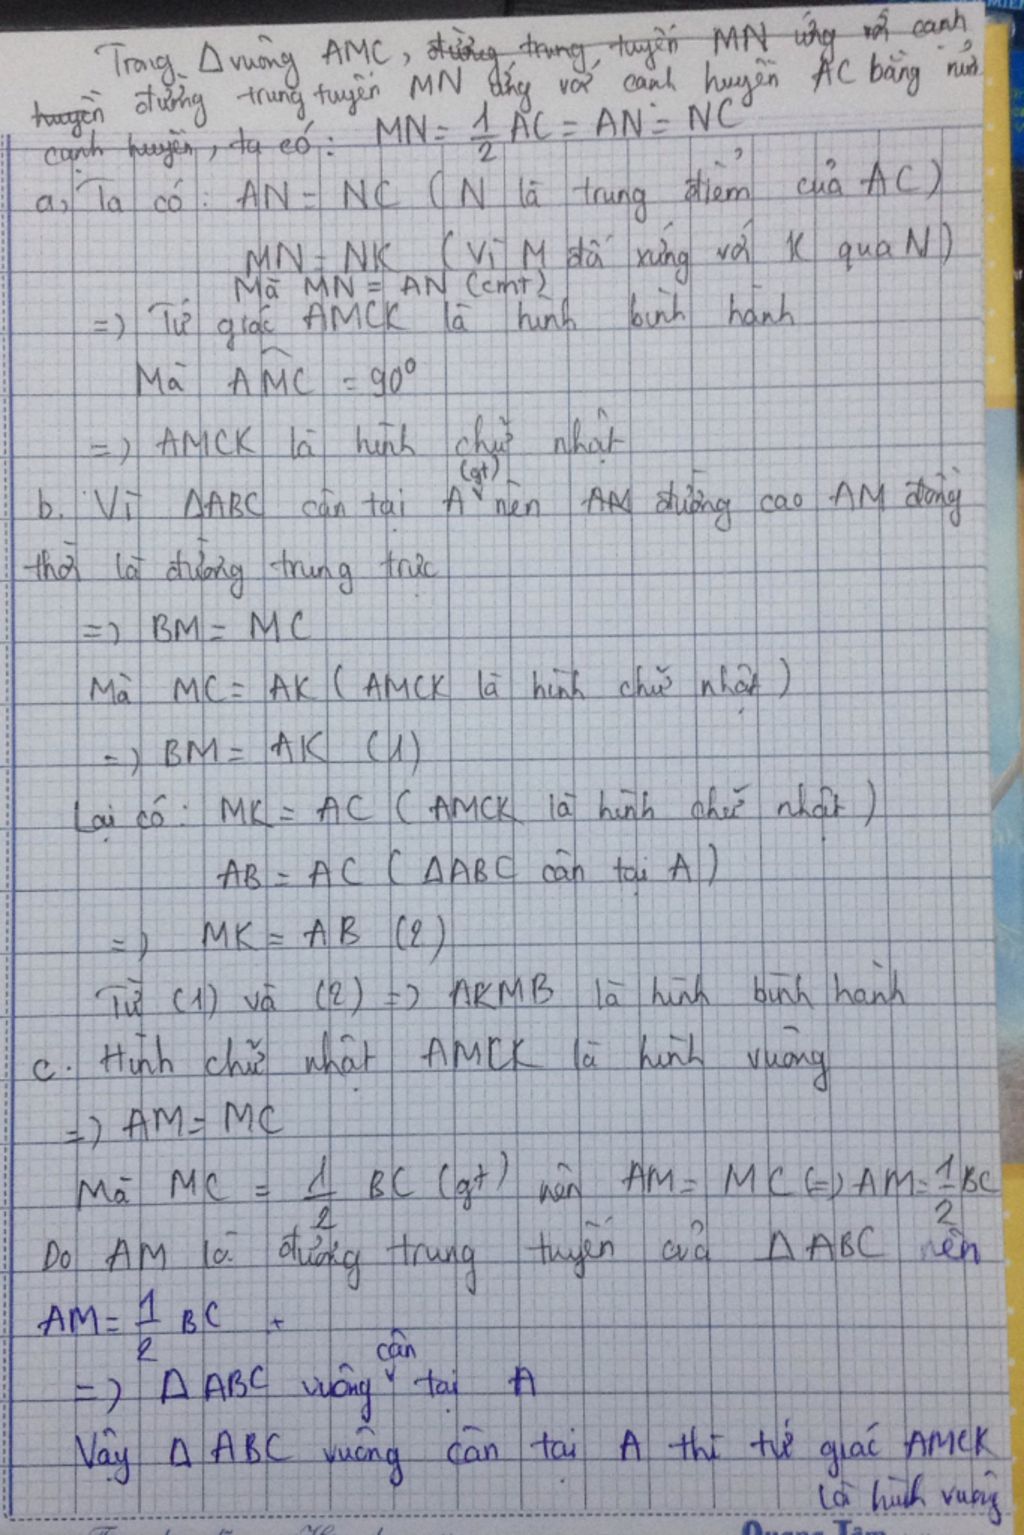 Trong Δ vuông AMC, đường trung tuyến MN ứng với cạnh
huyền đường trung tuyến MN ứng với cạnh huyền AC bằng nửa
cạnh huyền, ta có: MN = 1/2 AC = AN = NC
a, Ta có: AN = NC (N là trung điểm của AC)
MN = NK (Vì M đối xứng với K qua N)
Mà MN = AN (cmt)
=> Tứ giác AMCK là hình bình hành
Mà AMC = 90°
=> AMCK là hình chữ nhật
(gt)
b. Vì ΔABC cân tại A nên AM đường cao AM đồng
thời là đường trung trực
=> BM = MC
Mà MC = AK (AMCK là hình chữ nhật)
=> BM = AK (1)
Lại có: MK = AC (AMCK là hình chữ nhật)
AB = AC (ΔABC cân tại A)
=> MK = AB (2)
Từ (1) và (2) => AKMB là hình bình hành
c. Hình chữ nhật AMCK là hình vuông
=> AM = MC
Mà MC = 1/2 BC (gt) nên AM = MC (=) AM = 1/2 BC
Do AM là đường trung tuyến của ΔABC nên
AM = 1/2 BC
cân
=> ΔABC vuông tại A
Vậy ΔABC vuông cân tại A thì tứ giác AMCK
là hình vuông